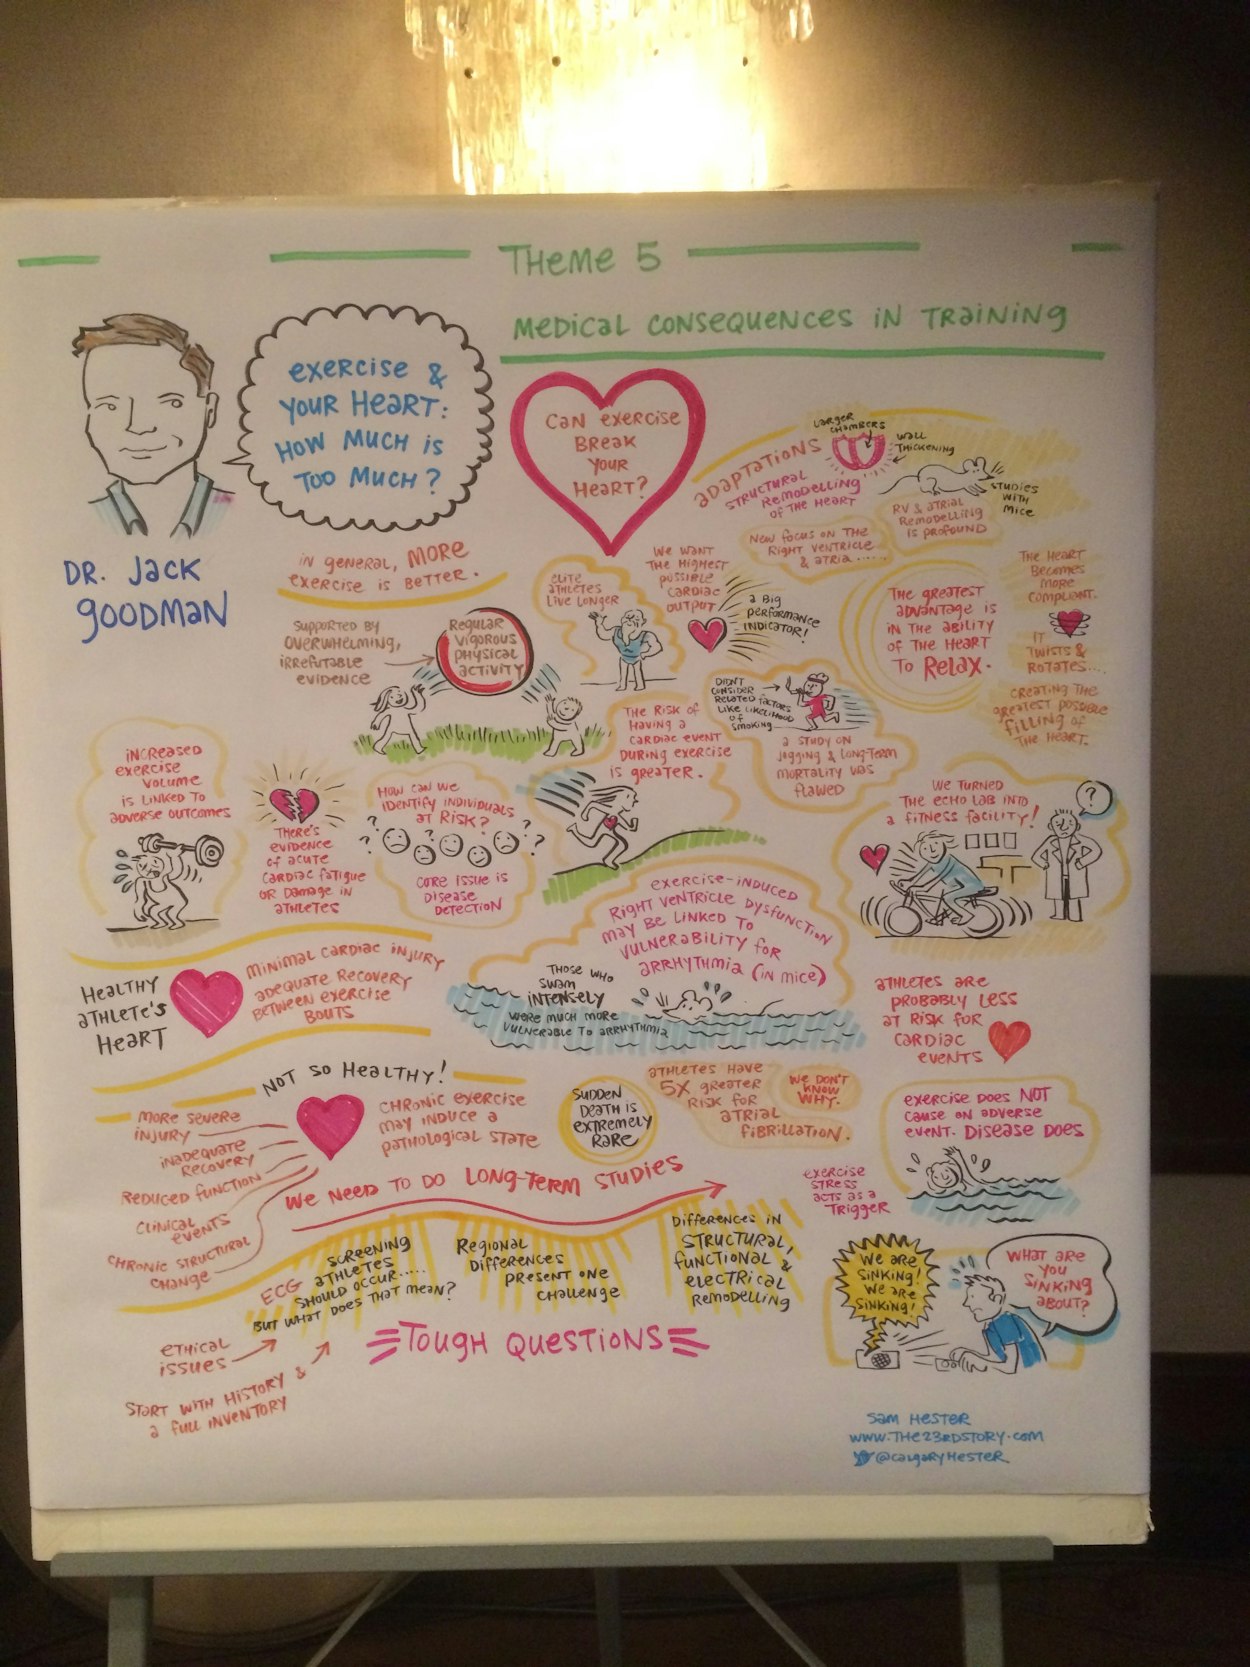 THEME 5
MEDICAL CONSEQUENCES IN TRAINING
EXERCISE &
YOUR HEART:
HOW MUCH IS
TOO MUCH?
DR. JACK
GOODMAN
CAN EXERCISE
BREAK
YOUR
HEART?
ADAPTATIONS
STRUCTURAL
REMODELLING
OF THE HEART
LARGER
CHAMBERS
WALL
THICKENING
STUDIES
WITH
MICE
RV & ATRIAL
REMODELLING
IS PROFOUND
NEW FOCUS ON THE
RIGHT VENTRICLE
& ATRIA......
IN GENERAL, MORE
EXERCISE IS BETTER.
SUPPORTED BY
OVERWHELMING,
IRREFUTABLE
EVIDENCE
REGULAR
VIGOROUS
PHYSICAL
ACTIVITY
ELITE
ATHLETES
LIVE LONGER
WE WANT
THE HIGHEST
POSSIBLE
CARDIAC
OUTPUT
A BIG
PERFORMANCE
INDICATOR!
THE GREATEST
ADVANTAGE IS
IN THE ABILITY
OF THE HEART
TO RELAX.
THE HEART
BECOMES
MORE
COMPLIANT.
IT
TWISTS &
ROTATES...
CREATING THE
GREATEST POSSIBLE
FILLING OF
THE HEART.
THE RISK OF
HAVING A
CARDIAC EVENT
DURING EXERCISE
IS GREATER.
DIDN'T
CONSIDER
RELATED FACTORS
LIKE LIKELIHOOD
OF
SMOKING
A STUDY ON
JOGGING & LONG-TERM
MORTALITY WAS
FLAWED
INCREASED
EXERCISE
VOLUME
IS LINKED TO
ADVERSE OUTCOMES
THERE'S
EVIDENCE
OF ACUTE
CARDIAC FATIGUE
OR DAMAGE IN
ATHLETES
HOW CAN WE
IDENTIFY INDIVIDUALS
AT RISK?
? ? ? ? ? ?
CORE ISSUE IS
DISEASE
DETECTION
WE TURNED
THE ECHO LAB INTO
A FITNESS FACILITY!
?
EXERCISE-INDUCED
RIGHT VENTRICLE DYSFUNCTION
MAY BE LINKED TO
VULNERABILITY FOR
ARRHYTHMIA (IN MICE)
THOSE WHO
SWAM
INTENSELY
WERE MUCH MORE
VULNERABLE TO ARRHYTHMIA
HEALTHY
ATHLETE'S
HEART
MINIMAL CARDIAC INJURY
ADEQUATE RECOVERY
BETWEEN EXERCISE
BOUTS
ATHLETES ARE
PROBABLY LESS
AT RISK FOR
CARDIAC
EVENTS
NOT SO HEALTHY!
MORE SEVERE
INJURY
INADEQUATE
RECOVERY
REDUCED FUNCTION
CLINICAL
EVENTS
CHRONIC STRUCTURAL
CHANGE
CHRONIC EXERCISE
MAY INDUCE A
PATHOLOGICAL STATE
SUDDEN
DEATH IS
EXTREMELY
RARE
ATHLETES HAVE
5X GREATER
RISK FOR
ATRIAL
FIBRILLATION.
WE DON'T
KNOW
WHY.
EXERCISE DOES NOT
CAUSE AN ADVERSE
EVENT. DISEASE DOES
EXERCISE
STRESS
ACTS AS A
TRIGGER
WE NEED TO DO LONG-TERM STUDIES
ECG
SCREENING
ATHLETES
SHOULD OCCUR.....
BUT WHAT DOES THAT MEAN?
REGIONAL
DIFFERENCES
PRESENT ONE
CHALLENGE
DIFFERENCES IN
STRUCTURAL,
FUNCTIONAL &
ELECTRICAL
REMODELLING
TOUGH QUESTIONS
ETHICAL
ISSUES
START WITH HISTORY &
A FULL INVENTORY
WE ARE
SINKING!
WE ARE
SINKING!
WHAT ARE
YOU
SINKING
ABOUT?
SAM HESTER
WWW.THE23RDSTORY.COM
@CALGARYHESTER